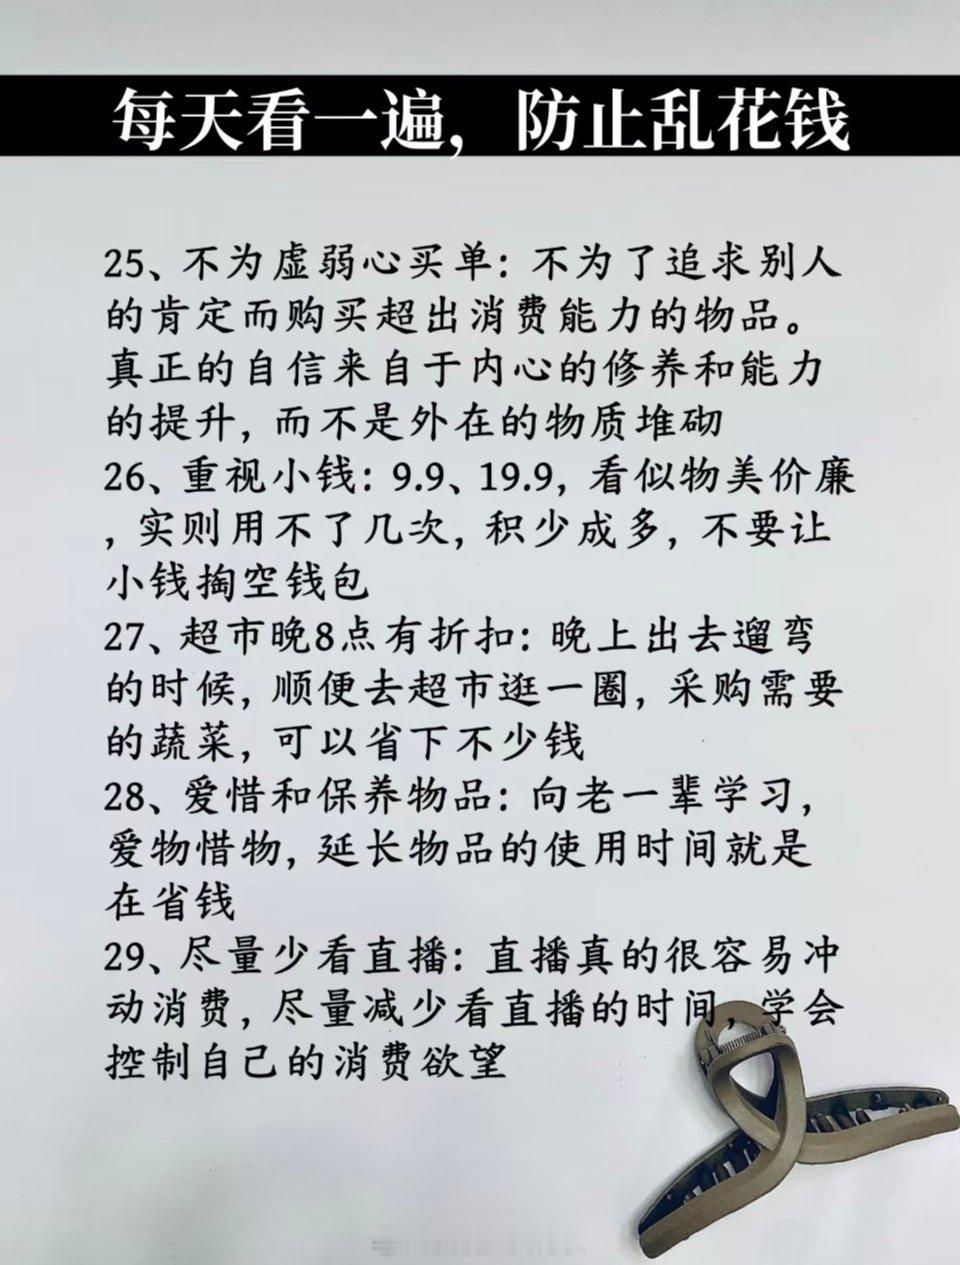 每天看一遍，防止乱花钱
25、不为虚弱心买单：不为了追求别人
的肯定而购买超出消费能力的物品。
真正的自信来自于内心的修养和能力
的提升，而不是外在的物质堆砌
26、重视小钱：9.9、19.9，看似物美价廉
，实则用不了几次，积少成多，不要让
小钱掏空钱包
27、超市晚8点有折扣：晚上出去遛弯
的时候，顺便去超市逛一圈，采购需要
的蔬菜，可以省下不少钱
28、爱惜和保养物品：向老一辈学习，
爱物惜物，延长物品的使用时间就是
在省钱
29、尽量少看直播：直播真的很容易冲
动消费，尽量减少看直播的时间，学会
控制自己的消费欲望